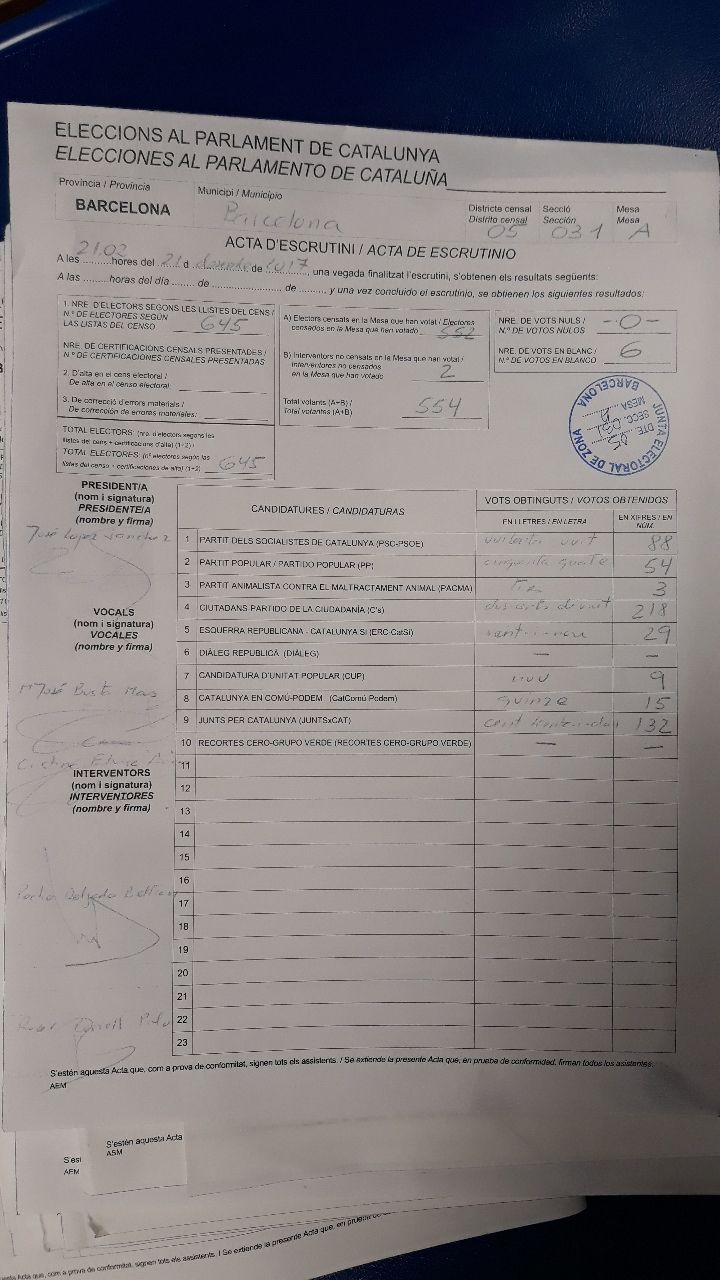 ELECCIONS AL PARLAMENT DE CATALUNYA
ELECCIONES AL PARLAMENTO DE CATALUÑA
Província / Provincia
BARCELONA
Municipi / Municipio
Barcelona
Districte censal
Distrito censal
05
Secció
Sección
031
Mesa
Mesa
A
ACTA D'ESCRUTINI / ACTA DE ESCRUTINIO
A les 21.02 hores del 21 d desembre de 2017, una vegada finalitzat l'escrutini, s'obtenen els resultats següents:
A las .........horas del día ....... de .................... de .........y una vez concluido el escrutinio, se obtienen los siguientes resultados:
1. NRE. D'ELECTORS SEGONS LES LLISTES DEL CENS /
N.º DE ELECTORES SEGÚN
LAS LISTAS DEL CENSO 645
NRE. DE CERTIFICACIONS CENSALS PRESENTADES /
N.º DE CERTIFICACIONES CENSALES PRESENTADAS
2. D'alta en el cens electoral /
De alta en el censo electoral
3. De correcció d'errors materials /
De corrección de errores materiales:
TOTAL ELECTORS: (nre. d'electors segons les
llistes del cens + certificacions d'alta) (1+2) /
TOTAL ELECTORES: (nº electores según las
listas del censo + certificaciones de alta) (1+2) 645
A) Electors censats en la Mesa que han votat / Electores
censados en la Mesa que han votado 552
B) Interventors no censats en la Mesa que han votat /
Interventores no censados
en la Mesa que han votado 2
Total votants (A+B) /
Total votantes (A+B) 554
NRE. DE VOTS NULS /
N.º DE VOTOS NULOS -0-
NRE. DE VOTS EN BLANC /
N.º DE VOTOS EN BLANCO 6
JUNTA ELECTORAL DE ZONA
BARCELONA
DTE. 05
SECC. 031
MESA
PRESIDENT/A
(nom i signatura)
PRESIDENTE/A
(nombre y firma)
José Lopez Sanchez
VOCALS
(nom i signatura)
VOCALES
(nombre y firma)
Mª José
INTERVENTORS
(nom i signatura)
INTERVENTORES
(nombre y firma)
CANDIDATURES / CANDIDATURAS
VOTS OBTINGUTS / VOTOS OBTENIDOS
EN LLETRES / EN LETRA
EN XIFRES / EN
NÚM.
1 PARTIT DELS SOCIALISTES DE CATALUNYA (PSC-PSOE) vuitanta vuit 88
2 PARTIT POPULAR / PARTIDO POPULAR (PP) cinquanta quatre 54
3 PARTIT ANIMALISTA CONTRA EL MALTRACTAMENT ANIMAL (PACMA) 3
4 CIUTADANS PARTIDO DE LA CIUDADANÍA (C's) 218
5 ESQUERRA REPUBLICANA - CATALUNYA SÍ (ERC-CatSí) 29
6 DIÀLEG REPUBLICÀ (DIÀLEG) — –
7 CANDIDATURA D'UNITAT POPULAR (CUP) nou 9
8 CATALUNYA EN COMÚ-PODEM (CatComú Podem) quinze 15
9 JUNTS PER CATALUNYA (JUNTSxCAT) 132
10 RECORTES CERO-GRUPO VERDE (RECORTES CERO-GRUPO VERDE) — —
11
12
13
14
15
16
17
18
19
20
21
22
23
S'estén aquesta Acta que, com a prova de conformitat, signen tots els assistents. / Se extiende la presente Acta que, en prueba de conformidad, firman todos los asistentes.
AEM
S'estén aquesta Acta
ASM
S'est
AEM
com a prova de conformitat, signen tots els assistents. / Se extiende la presente Acta que, en prueba de